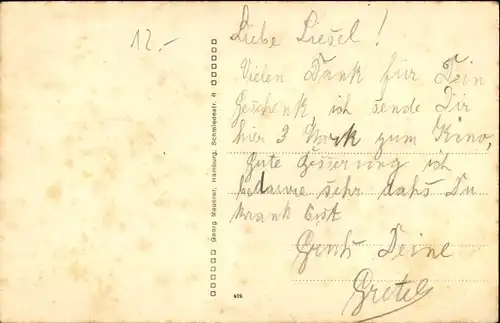 12.-
Liebe Liesel!
Vielen Dank für Dein
Geschenk ich sende Dir
hier 3 Mark zum Kino,
Gute Besserung ich
bedaure sehr dahs Du
krank bist
Gruß Deine
Gretel
Georg Mauerer, Hamburg, Schmiedestr. 8
406